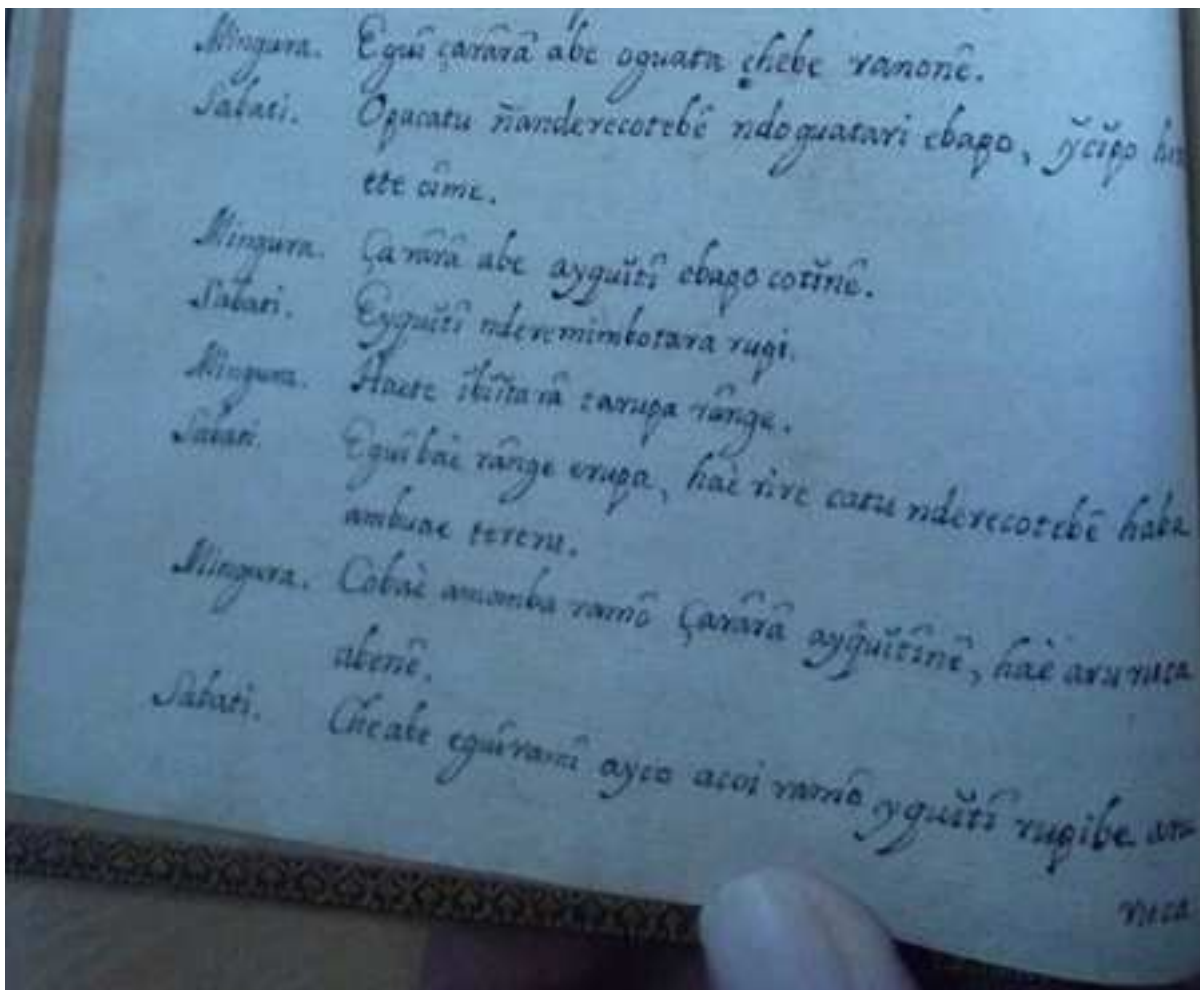 Mingura. Eguî çarârâ abe oguata chebe ranonê.
Sabati. Opacatu ñanderecotebê ndoguatari ebapo, ỹcĭpo
ete oîme.
Mingura. Çarârâ abe ayguĭtî ebapo cotĭnê.
Sabati. Eyguĭtî nderemimbotara rupi.
Mingura. Haete ĭbĭîtarâ tarupa rânge.
Sabati. Eguîbaè rânge erupa, haè rire catu nderecotebê haba
ambuae tereru.
Mingura. Cobaè amomba ramô Çarârâ ayguĭtînê, haè aru
abenê.
Sabati. Cheabe eguîramî ayco acoi ramô yguĭtî rupibe